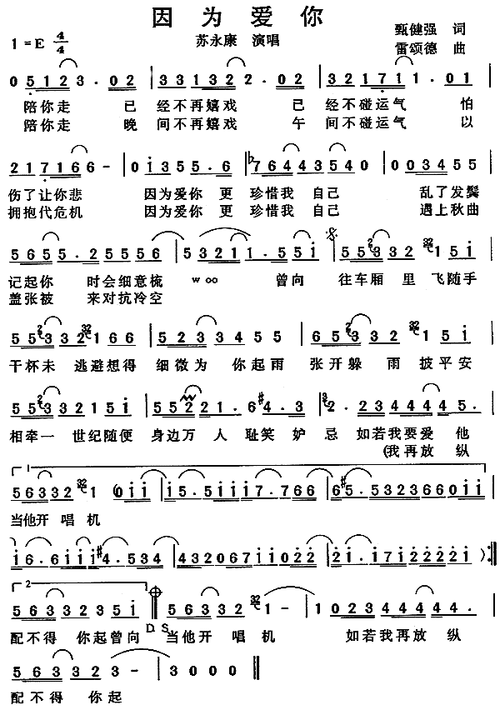 因为爱你
1=E 4/4 苏永康 演唱 甄健强 词
雷颂德 曲
0 5 1 2 3 . 0 2 | 3 3 1 3 2 2 . 0 2 | 3 2 1 7 1 1 . 0 7 |
陪你走 已 经不再嬉戏 已 经不碰运气 怕
陪你走 晚 间不再嬉戏 午 间不碰运气 以
2 1 7 1 6 6 - | 0 1 3 5 5 . 6 | 7 6 4 4 3 5 4 0 | 0 0 3 4 5 5 |
伤了让你悲 因为爱你 更 珍惜我 自己 乱了发鬓
拥抱代危机 因为爱你 更 珍惜我 自己 遇上秋曲
5 6 5 5 . 2 5 5 5 6 | 5 3 2 1 1 . 5 5 1 | 5 5 5 3 3 2 1 5 1 |
记起你 时会细意梳 woo 曾向 往车厢 里 飞随手
盖张被 来对抗冷空
5 5 5 3 3 2 1 6 6 | 5 2 3 3 4 5 5 | 6 5 5 3 3 2 1 5 1 |
干杯未 逃避想得 细微为 你起雨 张开躲 雨 披平安
5 5 5 3 3 2 2 1 5 1 | 5 5 2 2 1 . 6 4 . 3 | 2 . 2 3 4 4 4 4 5 . |
相牵一 世纪随便 身边万 人 耻笑 妒 忌 如若我要爱 他
(我再放 纵
1
5 6 3 3 2 1 (0 1 1 | 1 5 . 1 1 1 7 . 7 6 6 | 6 5 . 5 3 2 3 6 6 0 1 1 |
当他开 唱机
1 6 . 6 1 1 1 4 . 5 3 4 | 4 3 2 0 6 7 1 1 0 2 2 | 2 1 . 1 7 1 2 2 2 2 1 ) :||
2
5 6 3 3 2 3 5 1 | 5 6 3 3 2 1 - | 1 0 2 3 4 4 4 4 . |
配不得 你起曾向 D.S. 当他开 唱机 如若我再放 纵
5 6 3 3 2 3 - | 3 0 0 0 ||
配不得 你起